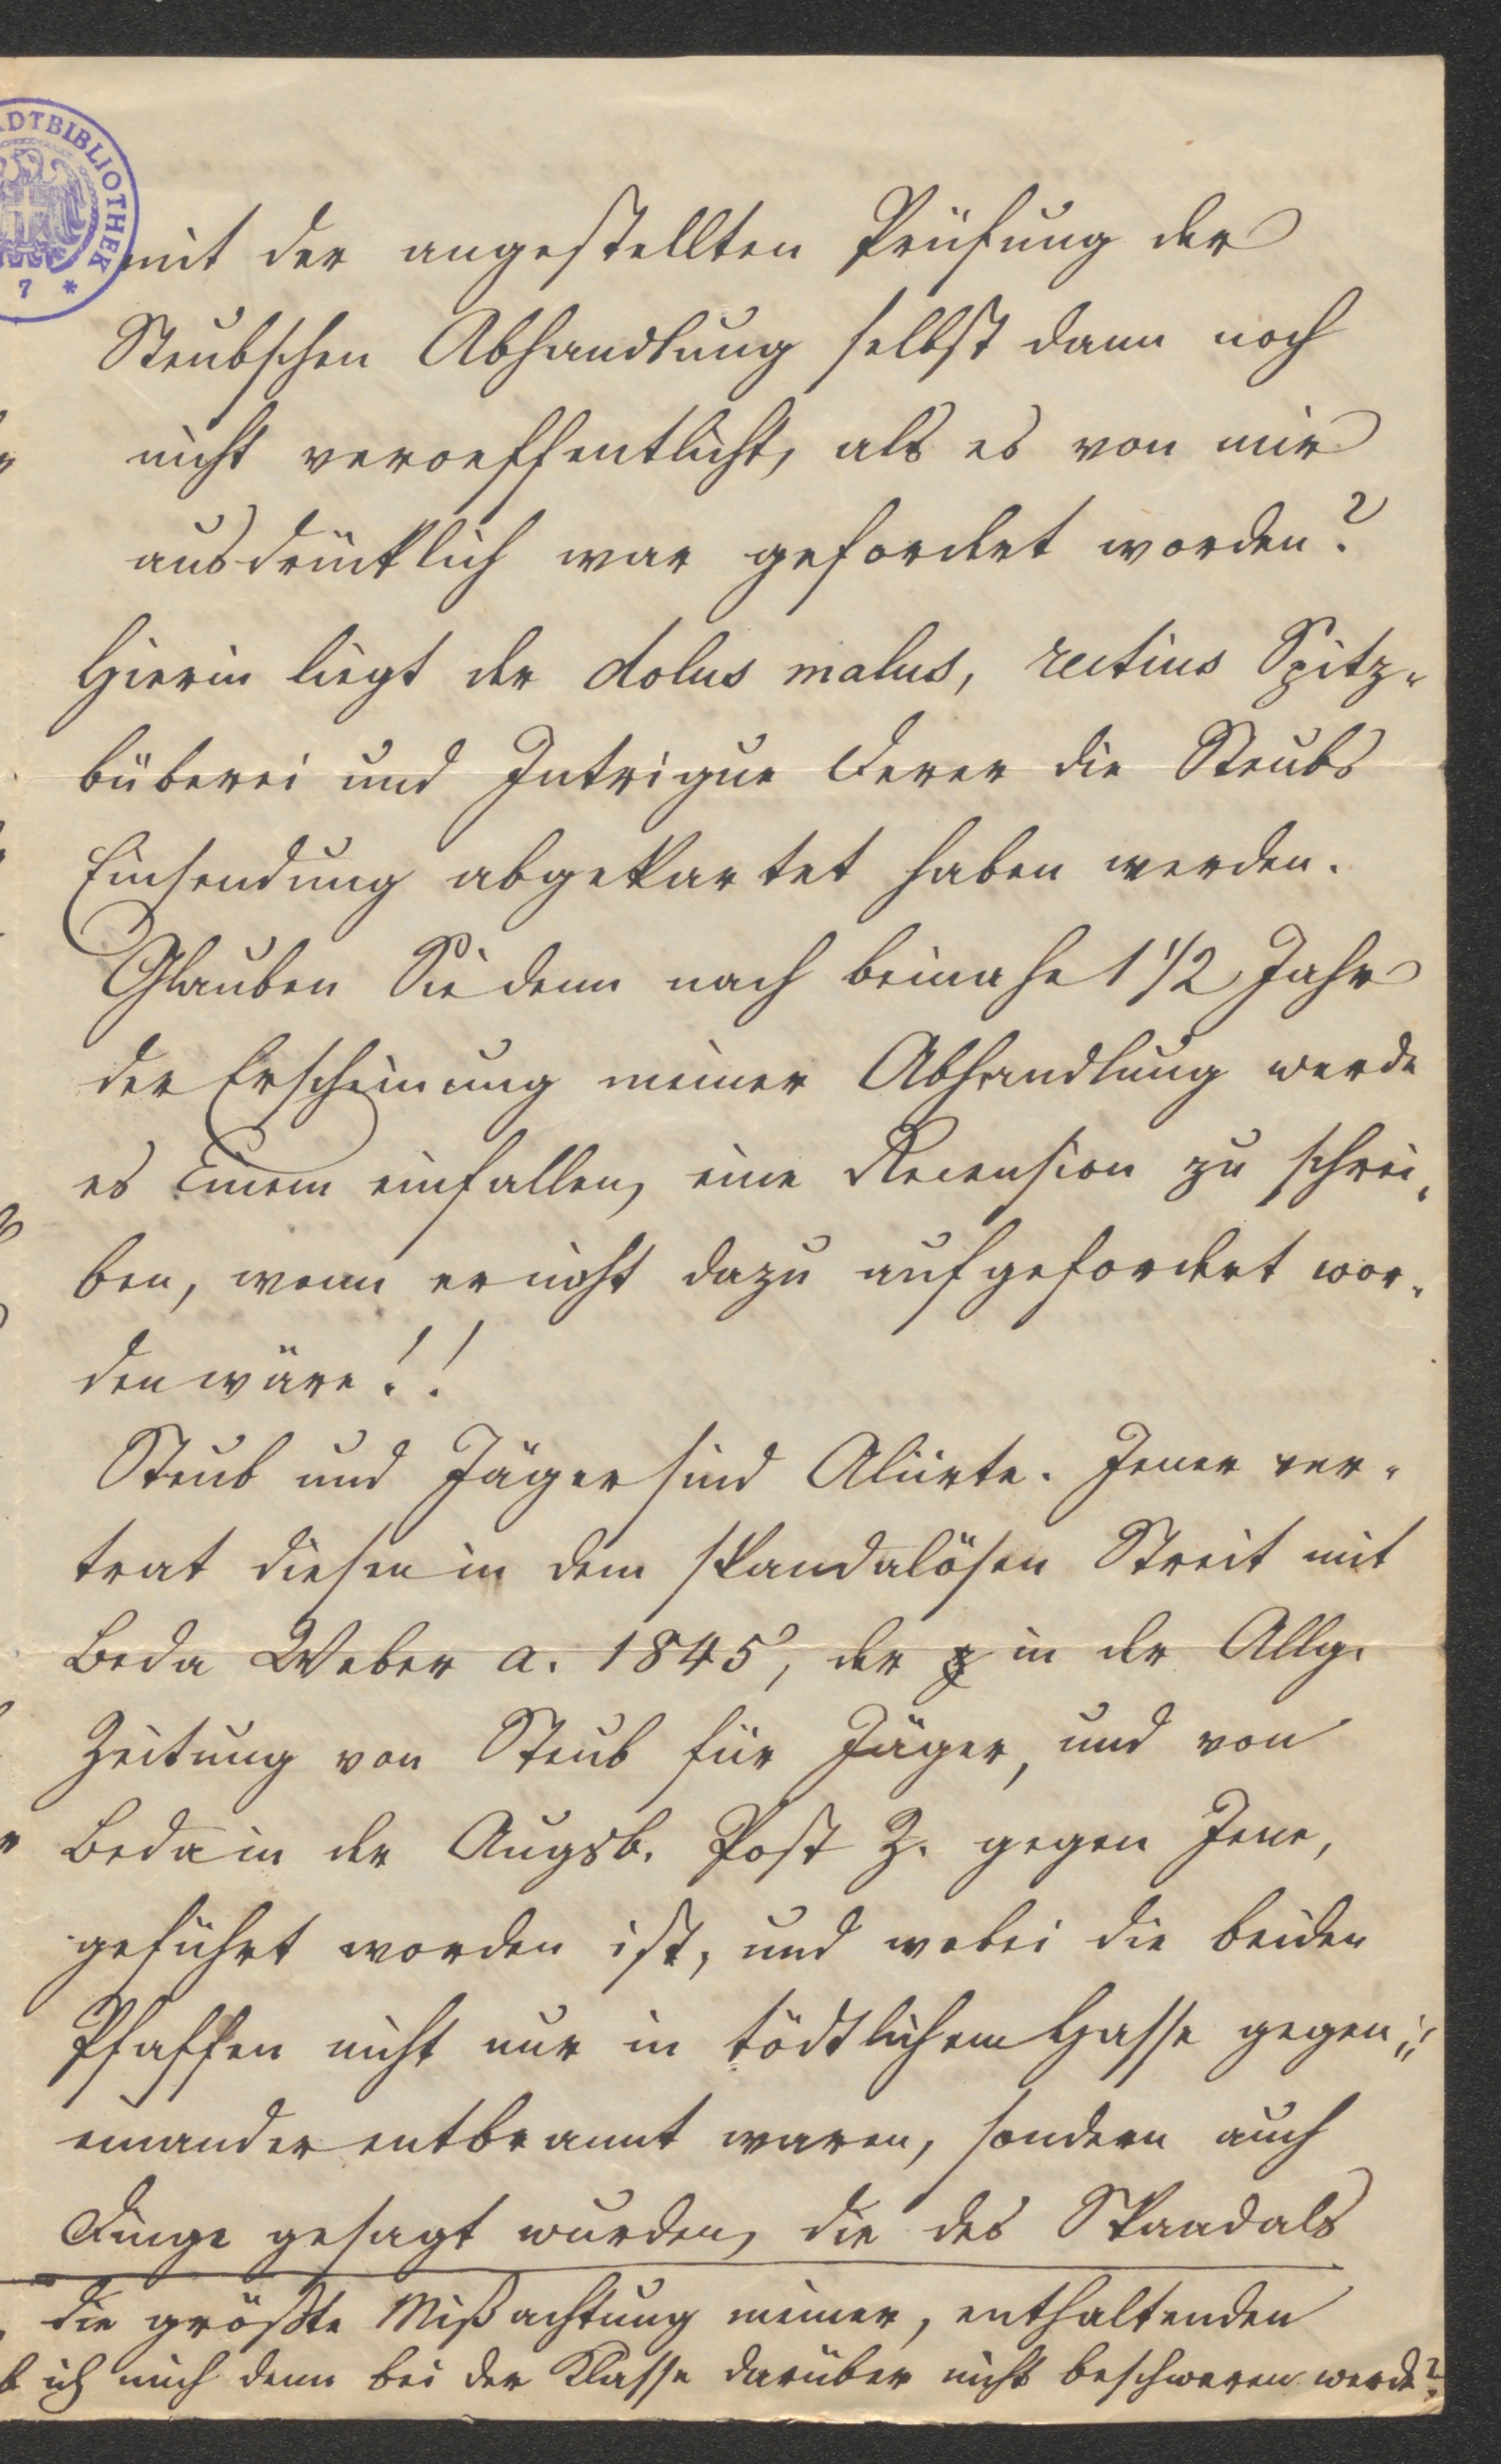 ADTBIBLIOTHEK
7 *
mit der angestellten Prüfung der
Steubschen Abhandlung selbst dann noch
nicht veroeffentlicht, als es von mir
ausdrücklich war gefordert worden?
Hierin liegt der dolus malus, rectius Spitz-
büberei und Intrigue Derer die Steubs
Einsendung abgekartet haben werden.
Glauben Sie denn nach beinahe 1 1/2 Jahr
der Erscheinung meiner Abhandlung werde
es Einem einfallen, eine Recension zu schrei-
ben, wenn er nicht dazu aufgefordert wor-
den wäre!!
Steub und Jäger sind Aliirte. Jener ver-
trat diesen in dem skandalösen Streit mit
Beda Weber a. 1845, der in der Allg.
Zeitung von Steub für Jäger, und von
Beda in der Augsb. Post Z. gegen Jene,
geführt worden ist, und wobei die beiden
Pfaffen nicht nur in tödtlichem Hasse gegen-
einander entbrannt waren, sondern auch
Dinge gesagt wurden, die des Skandals
die größte Mißachtung meiner, enthaltenden
b ich mich denn bei der Klasse darüber nicht beschweren werde?